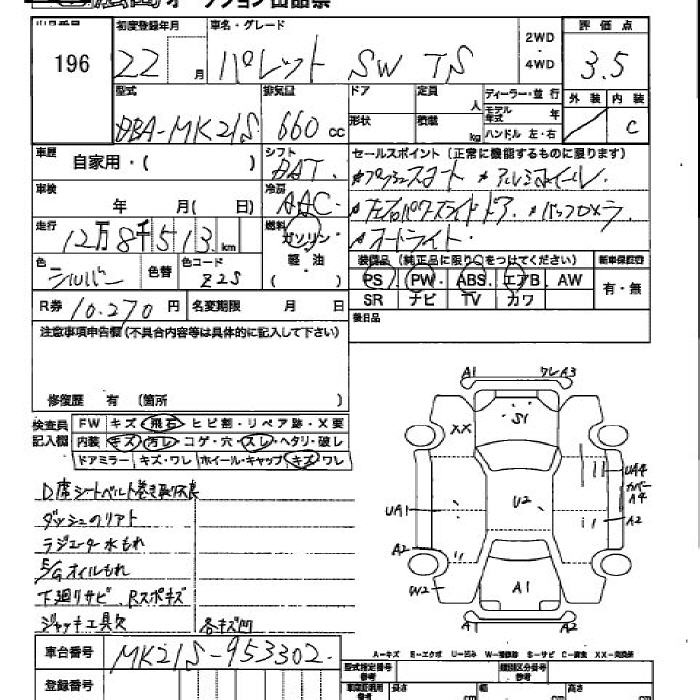 オークション出品票
出品番号 初度登録年月 車名・グレード 2WD・4WD 評価点
196 22 月 パレット SW TS 3.5
外装 内装
C
型式 排気量 ドア 定員 人 ディーラー・並行
DBA-MK21S 660 cc 形状 積載 kg モデル年式 年
ハンドル 左・右
車歴 自家用・( ) シフト DAT.
セールスポイント (正常に機能するものに限ります)
*プッシュスタート *アルミホイール.
車検 年 月( 日) 冷房 AAC.
*左右パワースライドドア. *バックカメラ.
走行 12万8千513 km 燃料 ガソリン・軽油
*オートライト.
色 シルバー 色替 色コード Z2S
装備品 (純正品に限り○をつけてください) 新車保証書
PS PW ABS エアB AW 有・無
SR ナビ TV カワ
R券 10.270 円 名変期限 月 日
後日品
注意事項申告欄 (不具合内容等は具体的に記入して下さい)
修復歴 有 (箇所 )
検査員記入欄 FW キズ・飛石・ヒビ割・リペア跡・X要
内装 キズ・汚レ・コゲ・穴・スレ・ヘタリ・破レ
ドアミラー キズ・ワレ ホイール・キャップ キズ・ワレ
D席シートベルト巻き取り不良
ダッシュのリアト
ラジエーター水もれ
E/Gオイルもれ
下廻りサビ. Rスポキズ
ジャッキ工具欠 各キズ凹
A1 ワレA3
XX S1
UA4
カバーA4
UA1 U2 A2
A2
W2 A1
A1 A2
A-キズ E-エクボ U-凹み W-補修跡 S-サビ C-腐食 XX-交換済
車台番号 MK21S-953302.
型式指定番号 参考 類別区分番号 参考
登録番号
長さ cm 幅 cm 高さ